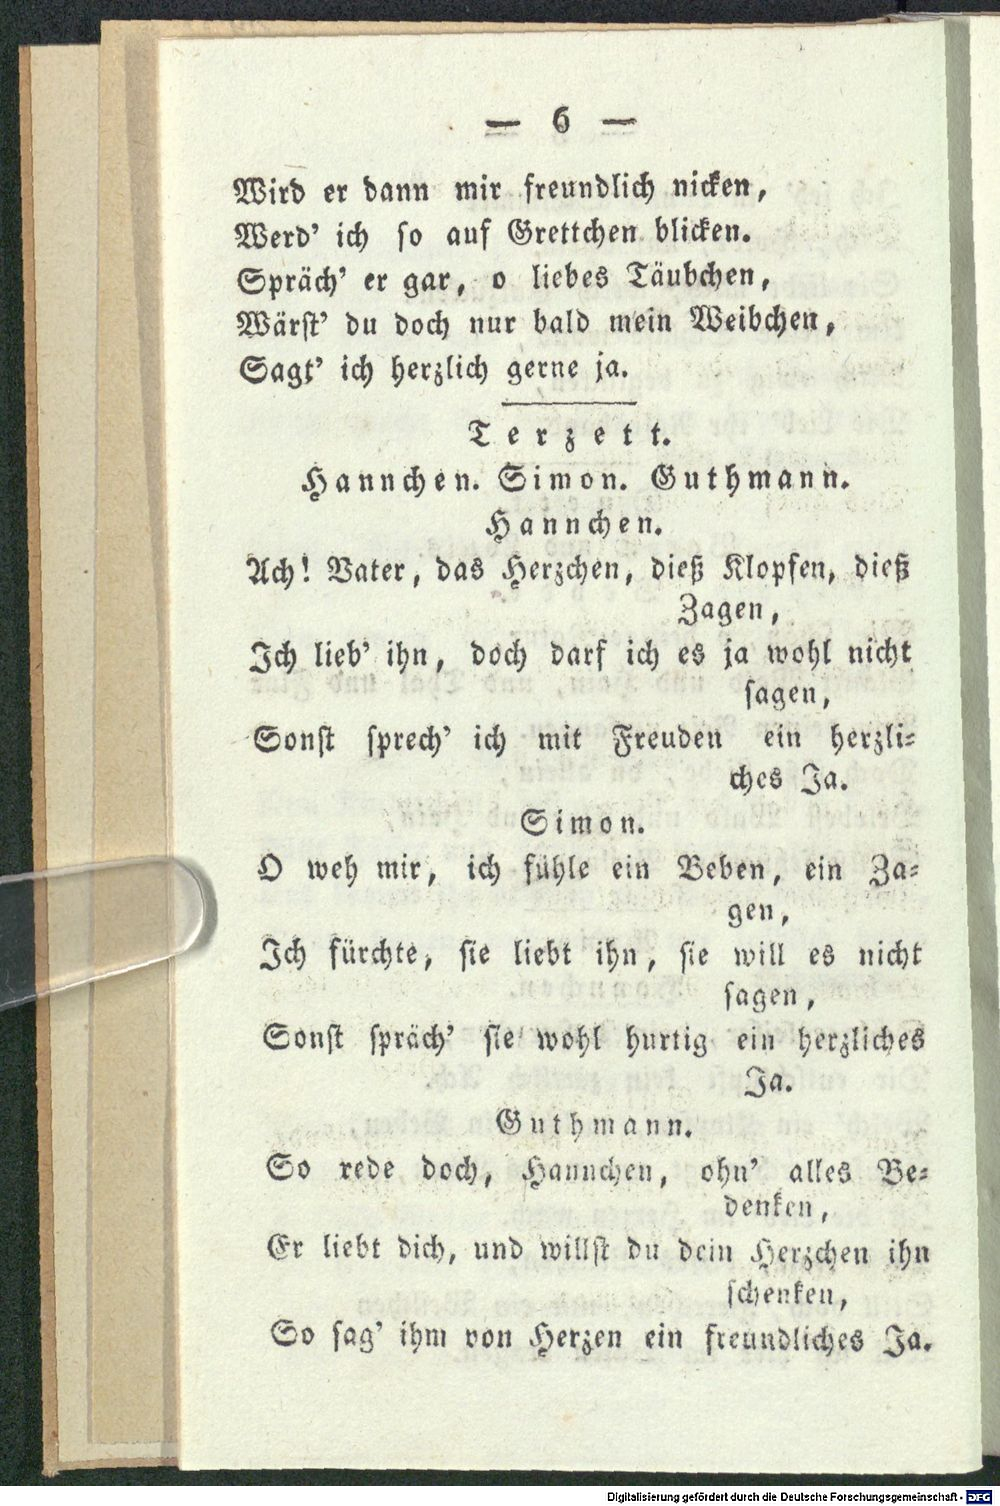 — 6 —
Wird er dann mir freundlich nicken,
Werd' ich so auf Grettchen blicken.
Spräch' er gar, o liebes Täubchen,
Wärst' du doch nur bald mein Weibchen,
Sagt' ich herzlich gerne ja.
Terzett.
Hannchen. Simon. Guthmann.
Hannchen.
Ach! Vater, das Herzchen, dieß Klopfen, dieß
Zagen,
Ich lieb' ihn, doch darf ich es ja wohl nicht
sagen,
Sonst sprech' ich mit Freuden ein herzli-
ches Ja.
Simon.
O weh mir, ich fühle ein Beben, ein Za-
gen,
Ich fürchte, sie liebt ihn, sie will es nicht
sagen,
Sonst spräch' sie wohl hurtig ein herzliches
Ja.
Guthmann.
So rede doch, Hannchen, ohn' alles Be-
denken,
Er liebt dich, und willst du dein Herzchen ihn
schenken,
So sag' ihm von Herzen ein freundliches Ja.
Digitalisierung gefördert durch die Deutsche Forschungsgemeinschaft - DFG